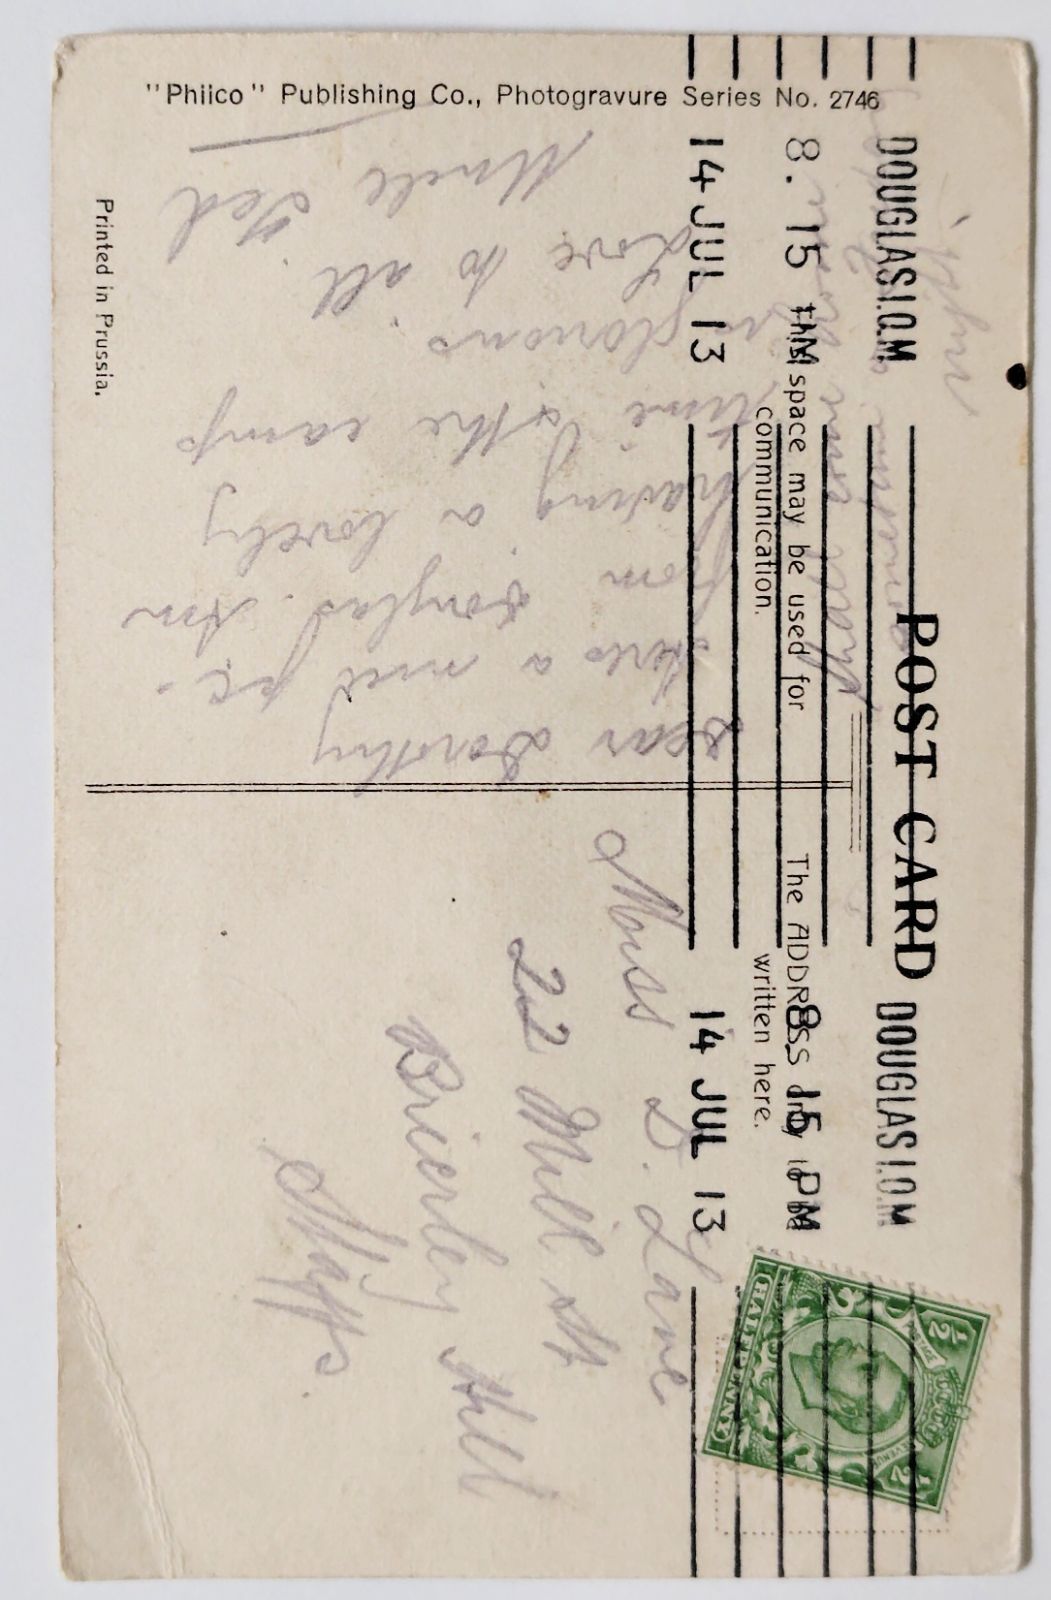 "Philco" Publishing Co., Photogravure Series No. 2746
POST CARD
This space may be used for
communication.
The ADDRESS only to be
written here.
DOUGLAS I.O.M
8.15 PM
14 JUL 13
DOUGLAS I.O.M
8.15 PM
14 JUL 13
HALFPENNY
1/2
1/2
REVENUE
Dear Dorothy
Heres a nice pc.
from Douglas. Am
having a lovely
time & the camp
is glorious.
Love to all
Uncle Ted
Miss D. Lane
22 Mill St
Brierley Hill
Staffs.
Printed in Prussia.